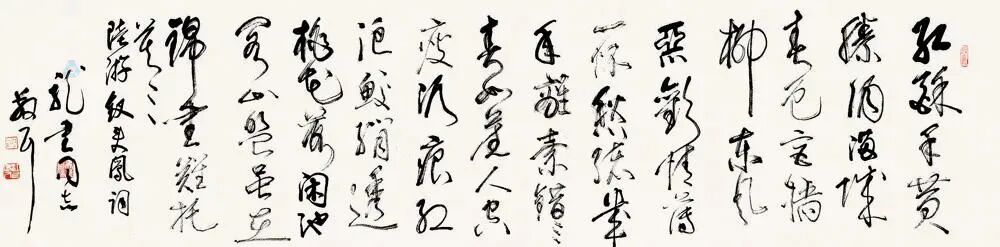 紅酥手黄
縢酒滿城
春色宫墙
柳東风
惡歡情薄
一懷愁緒幾
年離索錯〻〻
春如舊人空
瘦淚痕紅
浥鮫綃透
桃花落闲池
閣山盟虽在
錦書難托
莫〻〻
陸游钗头鳳词
龙書同志